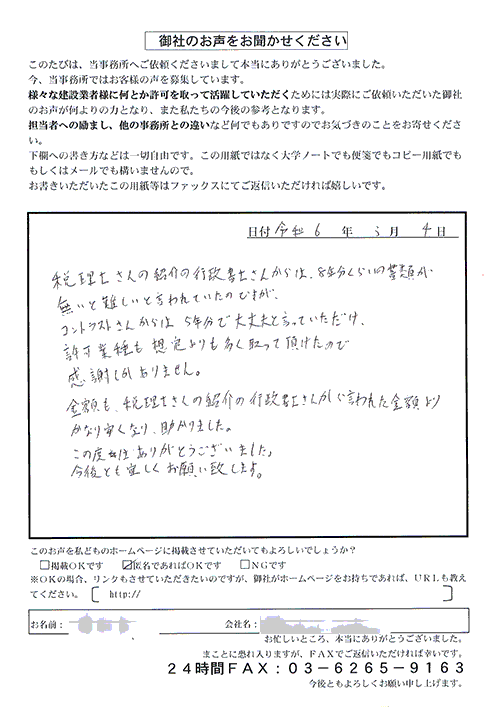 御社のお声をお聞かせください
このたびは、当事務所へご依頼くださいまして本当にありがとうございました。
今、当事務所ではお客様の声を募集しています。
様々な建設業者様に何とか許可を取って活躍していただくためには実際にご依頼いただいた御社
のお声が何よりの力となり、また私たちの今後の参考となります。
担当者への励まし、他の事務所との違いなど何でもありですのでお気づきのことをお寄せくださ
い。
下欄への書き方などは一切自由です。この用紙ではなく大学ノートでも便箋でもコピー用紙でも
もしくはメールでも構いませんので。
お書きいただいたこの用紙等はファックスにてご返信いただければ嬉しいです。
日付 令和 6 年 3 月 4 日
税理士さんの紹介の行政書士さんからは、8年分くらいの書類が
無いと難しいと言われていたのですが、
コントラストさんからは 5年分で大丈夫と言っていただけ、
許可業種も想定よりも多く取って頂けたので
感謝しかありません。
金額も、税理士さんの紹介の行政書士さんから言われた金額より
かなり安くなり、助かりました。
この度はありがとうございました。
今後とも宜しくお願い致します。
このお声を私どものホームページに掲載させていただいてもよろしいでしょうか？
□掲載OKです ☑匿名であればOKです □NGです
※OKの場合、リンクもさせていただきたいのですが、御社がホームページをお持ちであれば、URLも教え
てください。〔 http:// 〕
お名前： 会社名：
お忙しいところ、本当にありがとうございました。
まことに恐れ入りますが、FAXでご返信いただければ幸いです。
24時間FAX：03-6265-9163
今後ともよろしくお願い申し上げます。